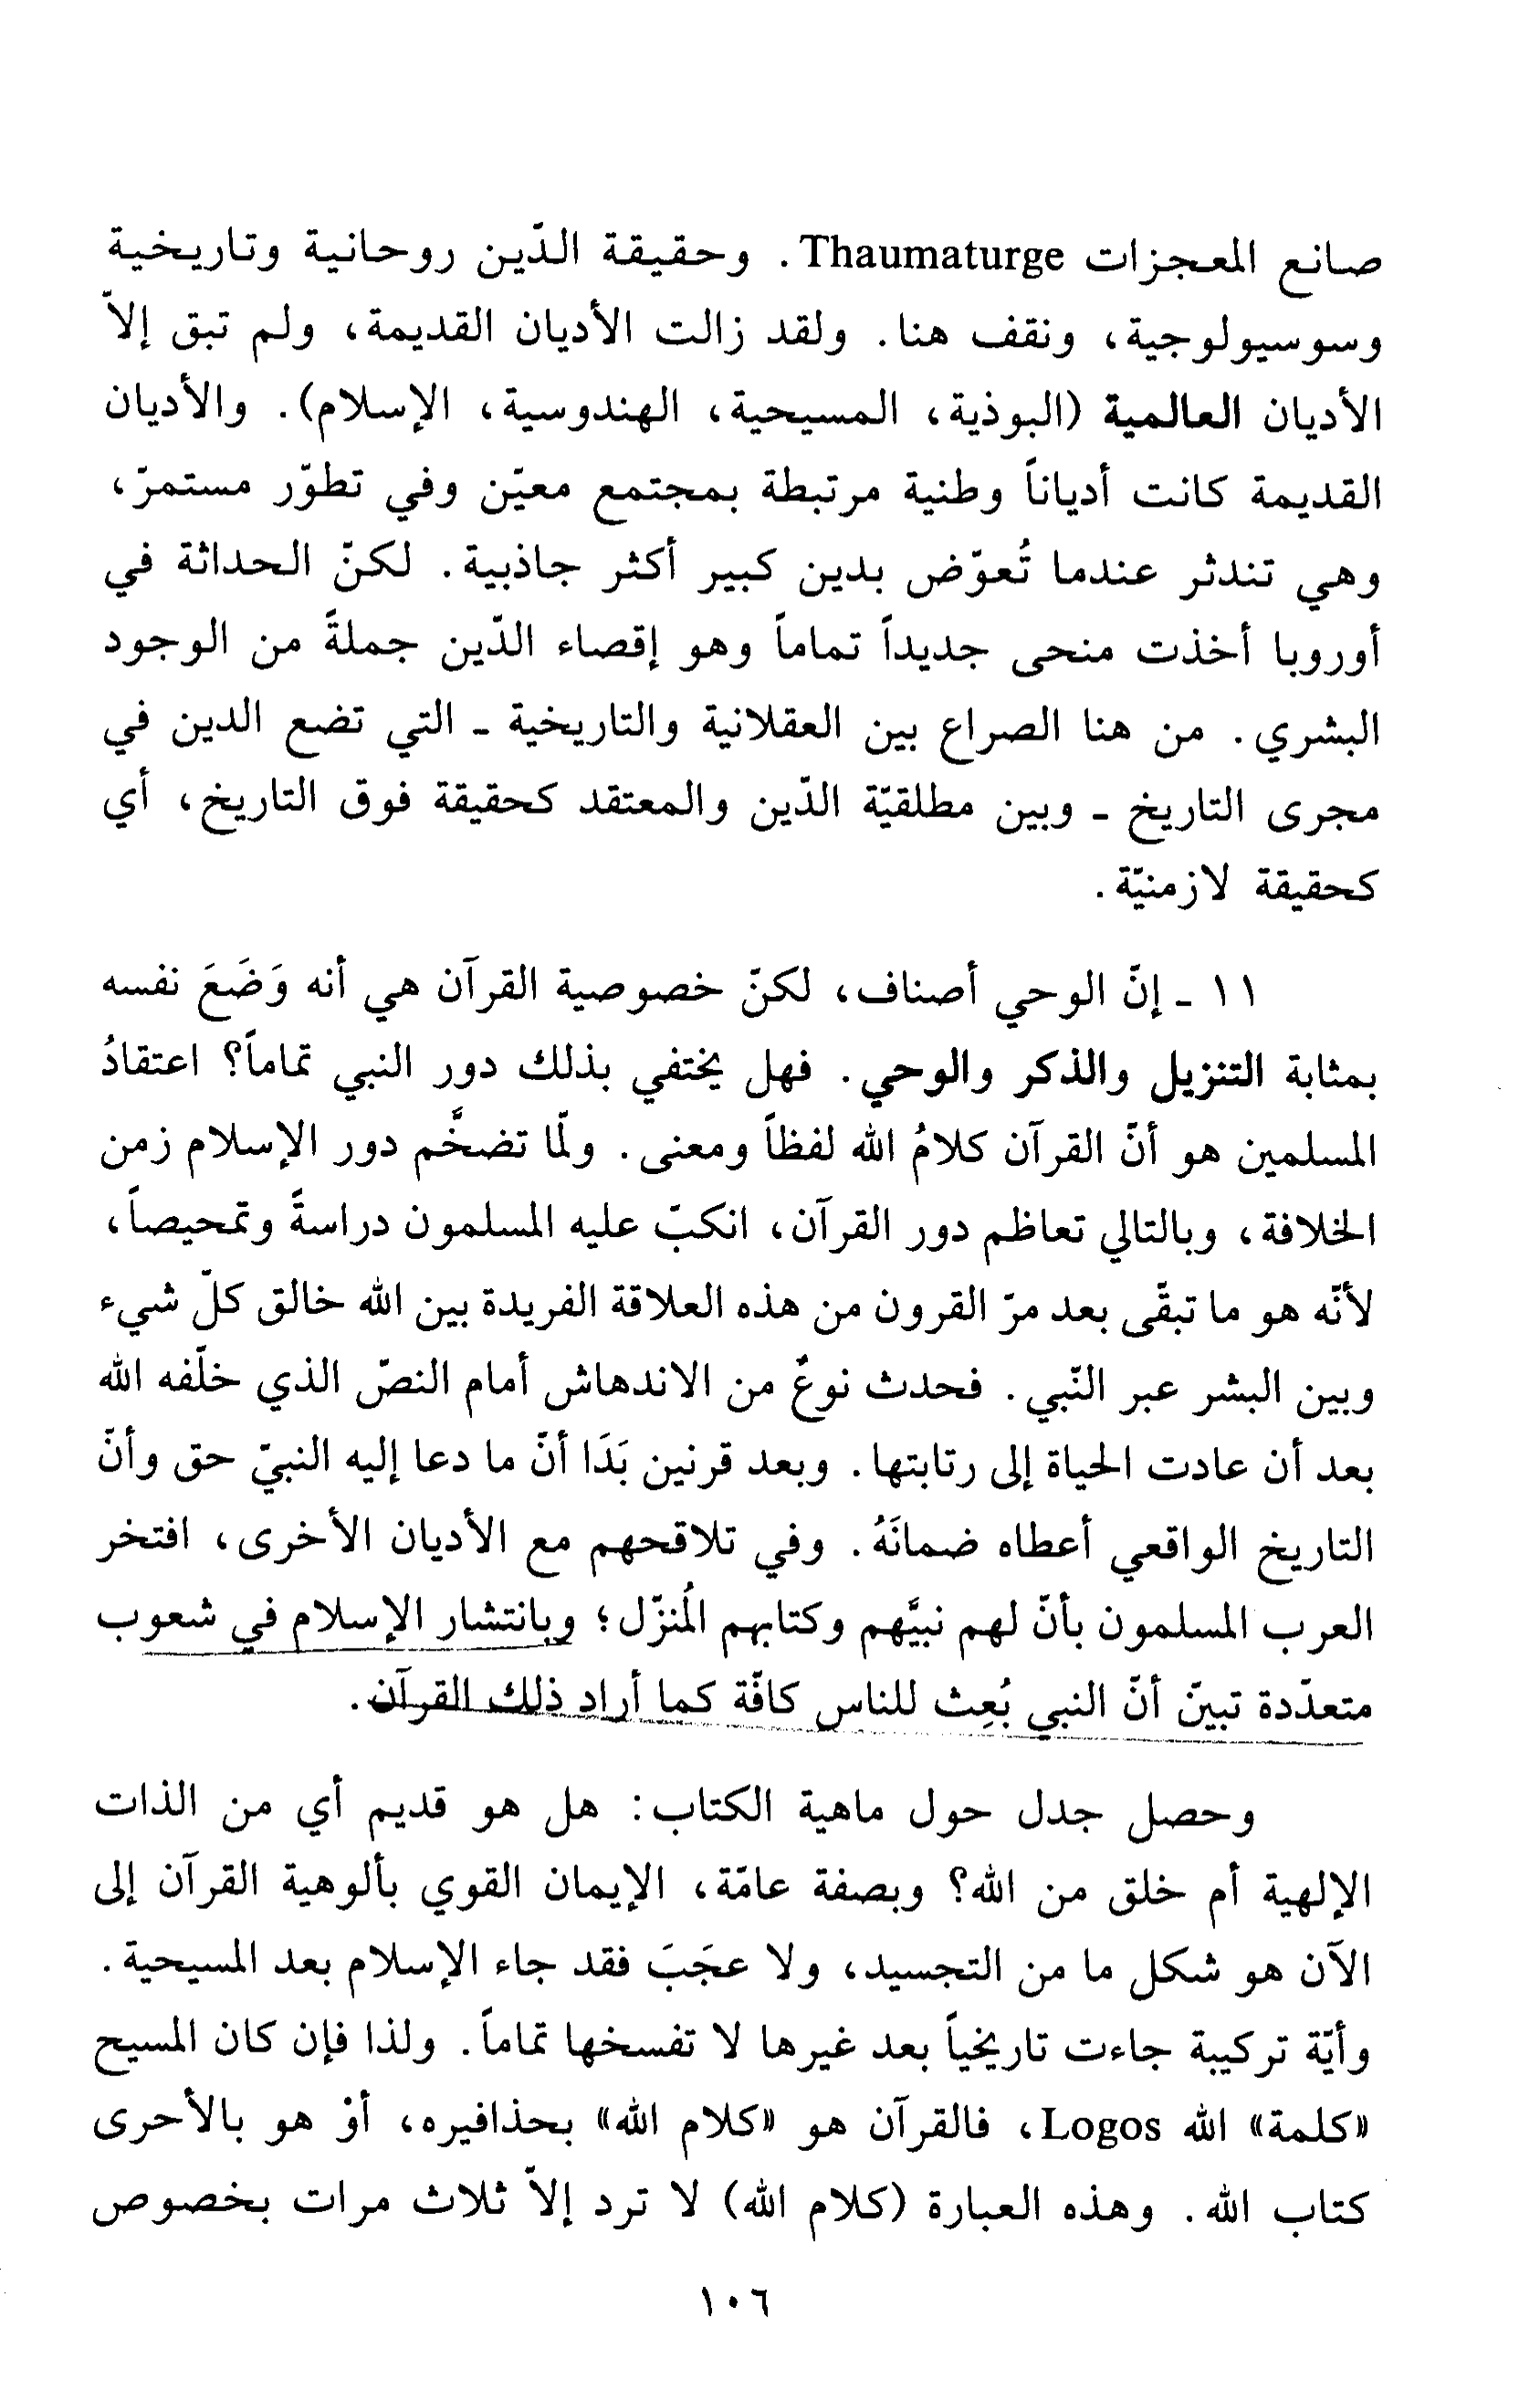 صانع المعجزات Thaumaturge. وحقيقة الدّين روحانية وتاريخية
وسوسيولوجية، ونقف هنا. ولقد زالت الأديان القديمة، ولم تبق إلاّ
الأديان العالمية (البوذية، المسيحية، الهندوسية، الإسلام). والأديان
القديمة كانت أدياناً وطنية مرتبطة بمجتمع معيّن وفي تطوّر مستمرّ،
وهي تندثر عندما تُعوّض بدين كبير أكثر جاذبية. لكنّ الحداثة في
أوروبا أخذت منحى جديداً تماماً وهو إقصاء الدّين جملةً من الوجود
البشري. من هنا الصراع بين العقلانية والتاريخية ـ التي تضع الدين في
مجرى التاريخ ـ وبين مطلقيّة الدّين والمعتقد كحقيقة فوق التاريخ، أي
كحقيقة لازمنيّة.
١١ ـ إنّ الوحي أصناف، لكنّ خصوصية القرآن هي أنه وَضَعَ نفسه
بمثابة التنزيل والذكر والوحي. فهل يختفي بذلك دور النبي تماماً؟ اعتقادُ
المسلمين هو أنّ القرآن كلامُ الله لفظاً ومعنى. ولمّا تضخَّم دور الإسلام زمن
الخلافة، وبالتالي تعاظم دور القرآن، انكبّ عليه المسلمون دراسةً وتمحيصاً،
لأنّه هو ما تبقّى بعد مرّ القرون من هذه العلاقة الفريدة بين الله خالق كلّ شيء
وبين البشر عبر النّبي. فحدث نوعٌ من الاندهاش أمام النصّ الذي خلّفه الله
بعد أن عادت الحياة إلى رتابتها. وبعد قرنين بَدَا أنّ ما دعا إليه النبيّ حق وأنّ
التاريخ الواقعي أعطاه ضمانَهُ. وفي تلاقحهم مع الأديان الأخرى، افتخر
العرب المسلمون بأنّ لهم نبيَّهم وكتابهم المُنزّل؛ وبانتشار الإسلام في شعوب
متعدّدة تبينّ أنّ النبي بُعِث للناس كافّة كما أراد ذلك القرآن.
وحصل جدل حول ماهية الكتاب: هل هو قديم أي من الذات
الإلهية أم خلق من الله؟ وبصفة عامّة، الإيمان القوي بألوهية القرآن إلى
الآن هو شكل ما من التجسيد، ولا عجَبَ فقد جاء الإسلام بعد المسيحية.
وأيّة تركيبة جاءت تاريخياً بعد غيرها لا تفسخها تماماً. ولذا فإن كان المسيح
«كلمة» الله Logos، فالقرآن هو «كلام الله» بحذافيره، أوْ هو بالأحرى
كتاب الله. وهذه العبارة (كلام الله) لا ترد إلاّ ثلاث مرات بخصوص
١٠٦